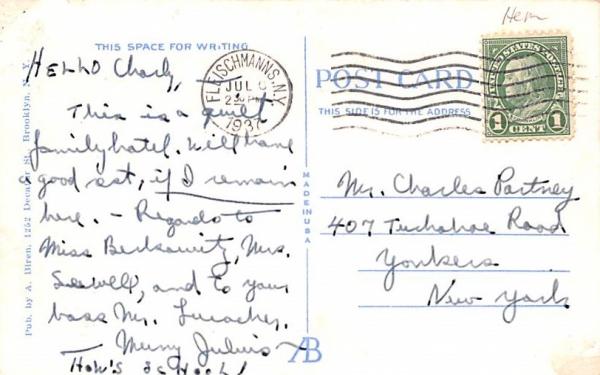 Hem
THIS SPACE FOR WRITING
HELLO Charly,
This is a quiet
family hotel. Will have
a good sat, if I remain
here. - Regards to
Miss Berkowitz, Mrs.
Sewell, and to your
boss Mr.
Julius
How's school!
Pub. by A. Bliren, 1252 Decatur St. Brooklyn, N. Y.
FLEISCHMANNS, N.Y.
JUL
2 30 PM
1937
MADE IN USA
AB
POST CARD
THIS SIDE IS FOR THE ADDRESS
UNITED STATES POSTAGE
1 CENT 1
Mr. Charles Partney
407 Tuckahoe Road
Yonkers
New York